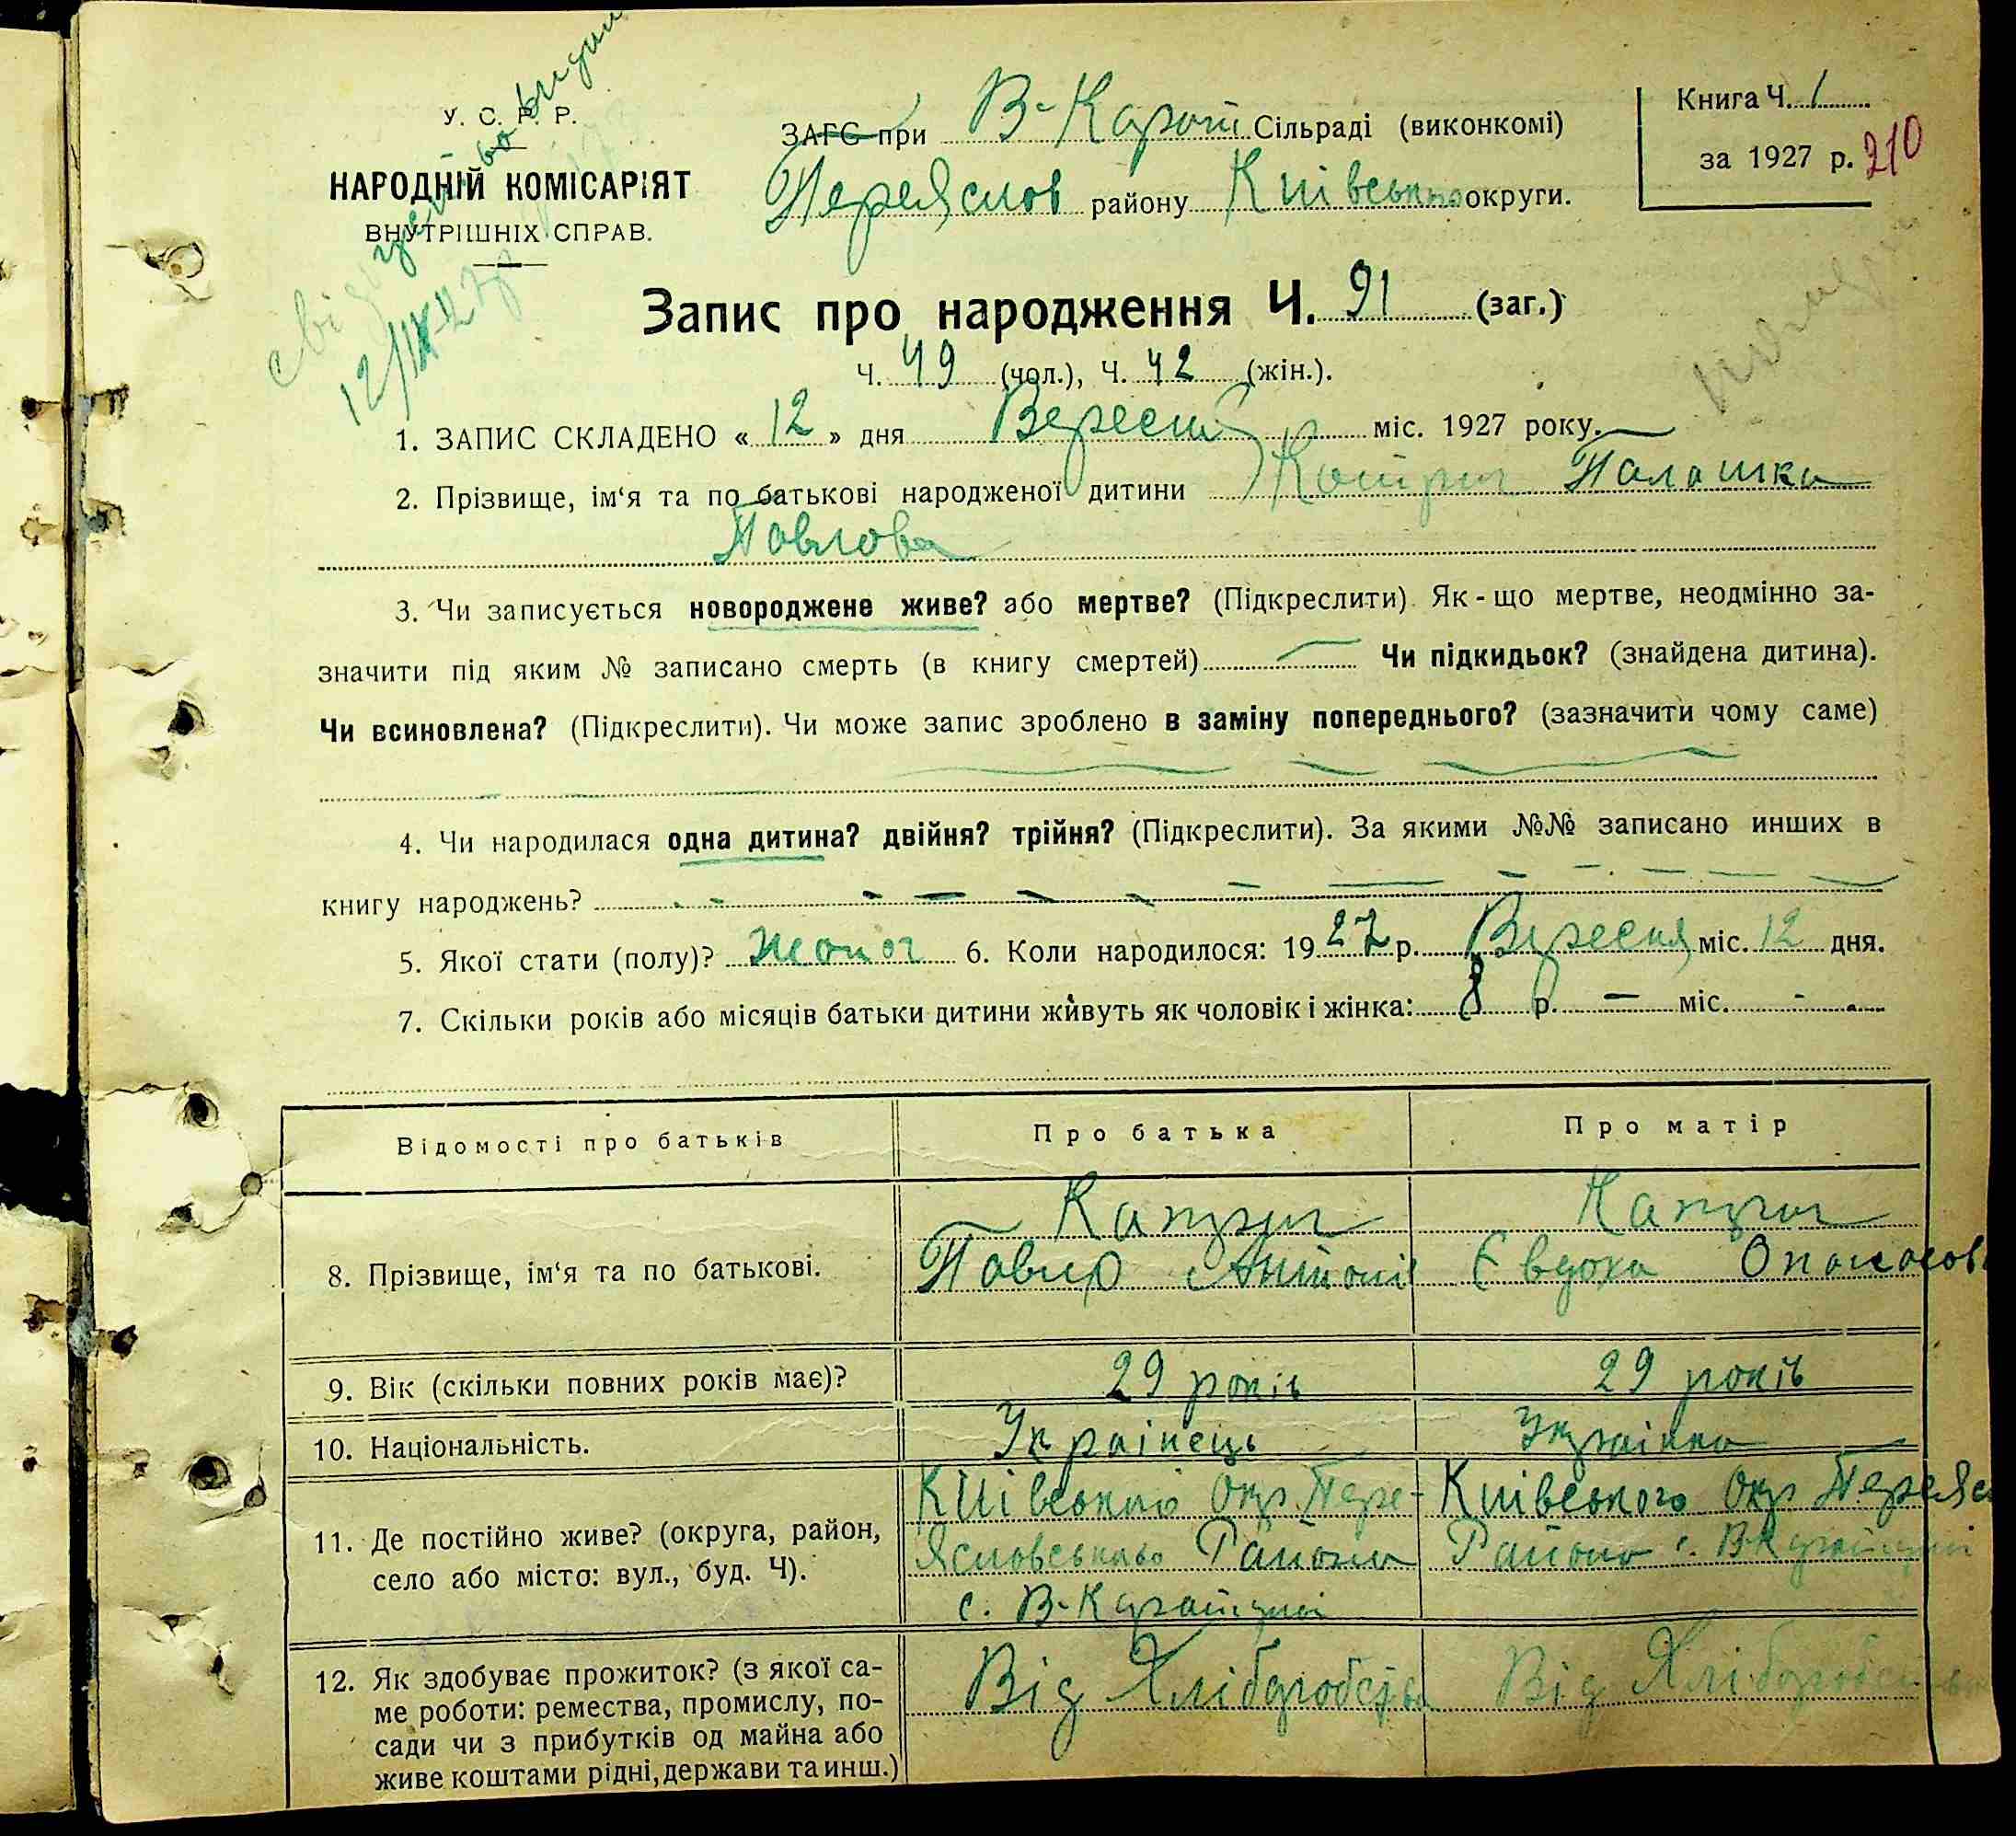 У. С. Р. Р.
НАРОДНІЙ КОМІСАРІЯТ
ВНУТРІШНІХ СПРАВ.
12/IX-27
ЗАГС при В-Карат Сільраді (виконкомі)
Переяслов району Київсько округи.
Книга Ч. 1
за 1927 р. 210
Запис про народження Ч. 91 (заг.)
Ч. 49 (чол.), Ч. 42 (жін.).
1. ЗАПИС СКЛАДЕНО « 12 » дня Вересня міс. 1927 року.
2. Прізвище, ім‘я та по батькові народженої дитини Палашка
Павлова
3. Чи записується новороджене живе? або мертве? (Підкреслити). Як-що мертве, неодмінно за-
значити під яким № записано смерть (в книгу смертей) Чи підкидьок? (знайдена дитина).
Чи всиновлена? (Підкреслити). Чи може запис зроблено в заміну попереднього? (зазначити чому саме)
4. Чи народилася одна дитина? двійня? трійня? (Підкреслити). За якими №№ записано инших в
книгу народжень?
5. Якої стати (полу)? жоноч 6. Коли народилося: 1927 р. Вересня міс. 12 дня.
7. Скільки років або місяців батьки дитини живуть як чоловік і жінка: 8 р. — міс. -
Відомості про батьків
Про батька
Про матір
8. Прізвище, ім‘я та по батькові.
Павло Антонів
Євдоха Опанасов
9. Вік (скільки повних років має)?
29 років
29 років
10. Національність.
Українець
Українка
11. Де постійно живе? (округа, район,
село або місто: вул., буд. Ч).
Київського Окр. Пере-
яславського Району
с. В-Каратуль
Київського Окр Переяс
Району с. В-Каратуль
12. Як здобуває прожиток? (з якої са-
ме роботи: ремества, промислу, по-
сади чи з прибутків од майна або
живе коштами рідні, держави та инш.)
Від Хліборобства
Від Хліборобства